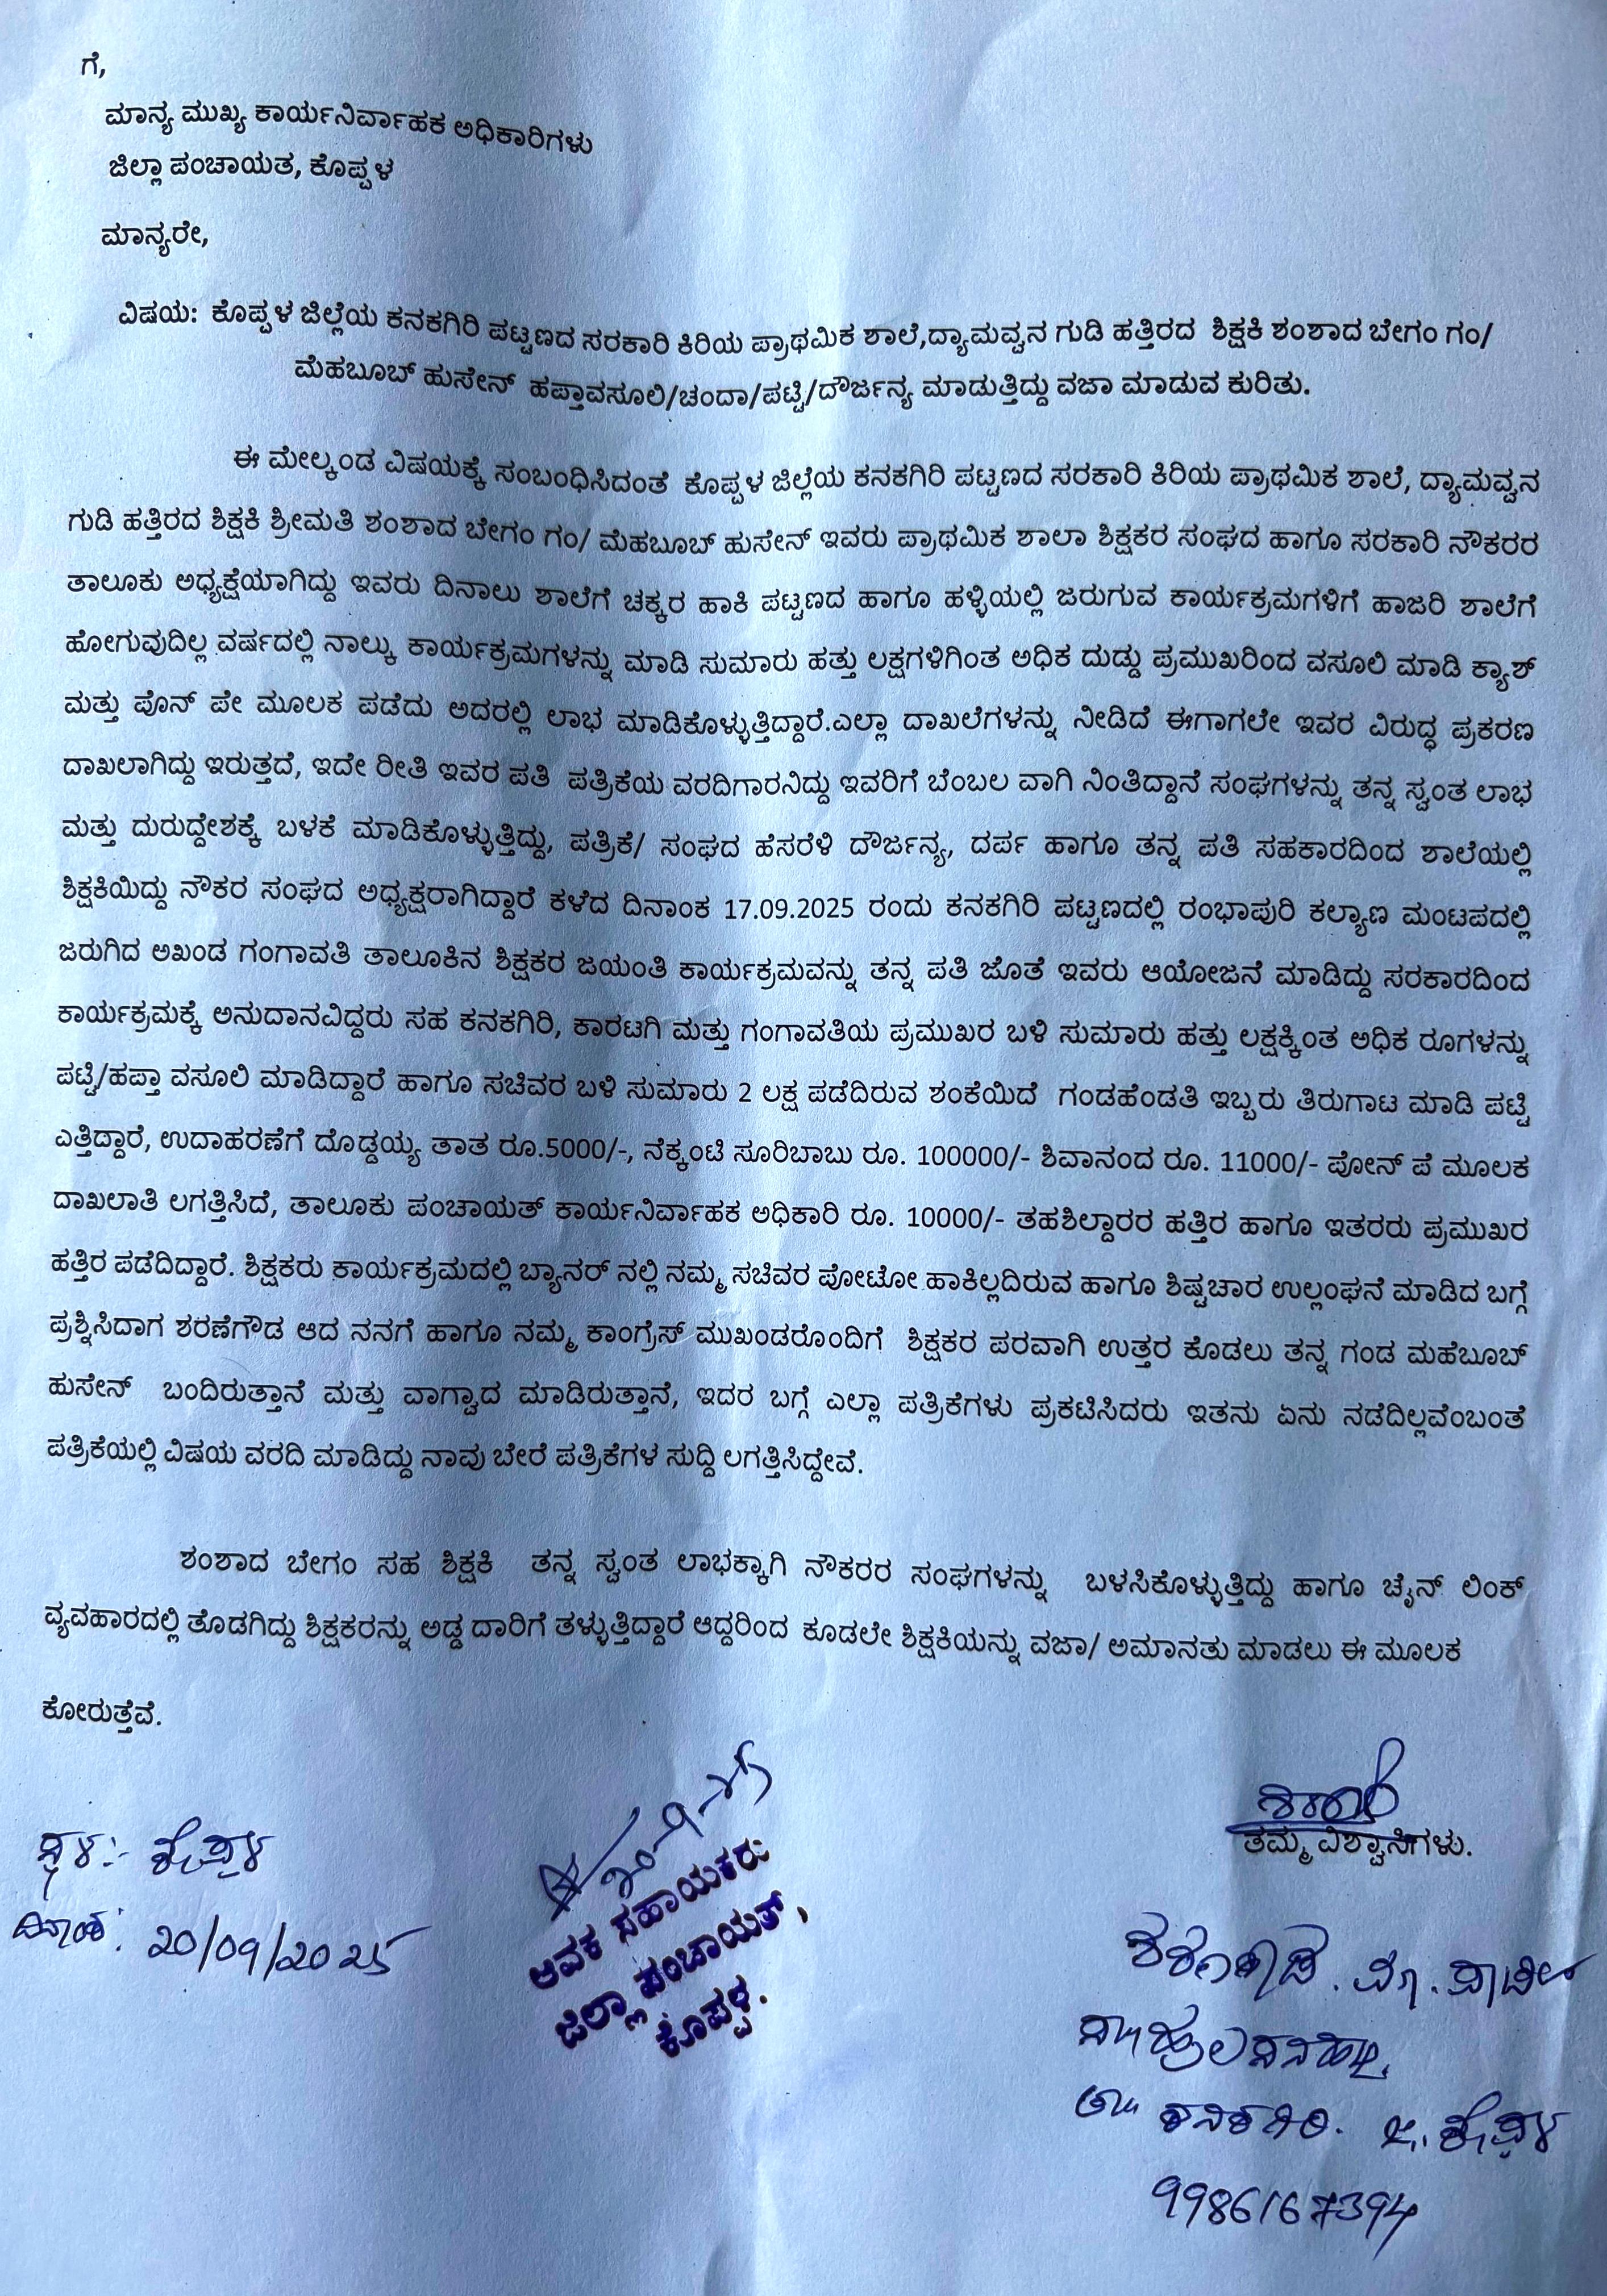 ಗೆ,
ಮಾನ್ಯ ಮುಖ್ಯ ಕಾರ್ಯನಿರ್ವಾಹಕ ಅಧಿಕಾರಿಗಳು
ಜಿಲ್ಲಾ ಪಂಚಾಯತ, ಕೊಪ್ಪಳ
ಮಾನ್ಯರೇ,
ವಿಷಯ: ಕೊಪ್ಪಳ ಜಿಲ್ಲೆಯ ಕನಕಗಿರಿ ಪಟ್ಟಣದ ಸರಕಾರಿ ಕಿರಿಯ ಪ್ರಾಥಮಿಕ ಶಾಲೆ,ದ್ಯಾಮವ್ವನ ಗುಡಿ ಹತ್ತಿರದ ಶಿಕ್ಷಕಿ ಶಂಶಾದ ಬೇಗಂ ಗಂ/
ಮೆಹಬೂಬ್ ಹುಸೇನ್ ಹಪ್ತಾವಸೂಲಿ/ಚಂದಾ/ಪಟ್ಟಿ/ದೌರ್ಜನ್ಯ ಮಾಡುತ್ತಿದ್ದು ವಜಾ ಮಾಡುವ ಕುರಿತು.
ಈ ಮೇಲ್ಕಂಡ ವಿಷಯಕ್ಕೆ ಸಂಬಂಧಿಸಿದಂತೆ ಕೊಪ್ಪಳ ಜಿಲ್ಲೆಯ ಕನಕಗಿರಿ ಪಟ್ಟಣದ ಸರಕಾರಿ ಕಿರಿಯ ಪ್ರಾಥಮಿಕ ಶಾಲೆ, ದ್ಯಾಮವ್ವನ
ಗುಡಿ ಹತ್ತಿರದ ಶಿಕ್ಷಕಿ ಶ್ರೀಮತಿ ಶಂಶಾದ ಬೇಗಂ ಗಂ/ ಮೆಹಬೂಬ್ ಹುಸೇನ್ ಇವರು ಪ್ರಾಥಮಿಕ ಶಾಲಾ ಶಿಕ್ಷಕರ ಸಂಘದ ಹಾಗೂ ಸರಕಾರಿ ನೌಕರರ
ತಾಲೂಕು ಅಧ್ಯಕ್ಷೆಯಾಗಿದ್ದು ಇವರು ದಿನಾಲು ಶಾಲೆಗೆ ಚಕ್ಕರ ಹಾಕಿ ಪಟ್ಟಣದ ಹಾಗೂ ಹಳ್ಳಿಯಲ್ಲಿ ಜರುಗುವ ಕಾರ್ಯಕ್ರಮಗಳಿಗೆ ಹಾಜರಿ ಶಾಲೆಗೆ
ಹೋಗುವುದಿಲ್ಲ ವರ್ಷದಲ್ಲಿ ನಾಲ್ಕು ಕಾರ್ಯಕ್ರಮಗಳನ್ನು ಮಾಡಿ ಸುಮಾರು ಹತ್ತು ಲಕ್ಷಗಳಿಗಿಂತ ಅಧಿಕ ದುಡ್ಡು ಪ್ರಮುಖರಿಂದ ವಸೂಲಿ ಮಾಡಿ ಕ್ಯಾಶ್
ಮತ್ತು ಪೊನ್ ಪೇ ಮೂಲಕ ಪಡೆದು ಅದರಲ್ಲಿ ಲಾಭ ಮಾಡಿಕೊಳ್ಳುತ್ತಿದ್ದಾರೆ.ಎಲ್ಲಾ ದಾಖಲೆಗಳನ್ನು ನೀಡಿದೆ ಈಗಾಗಲೇ ಇವರ ವಿರುದ್ಧ ಪ್ರಕರಣ
ದಾಖಲಾಗಿದ್ದು ಇರುತ್ತದೆ, ಇದೇ ರೀತಿ ಇವರ ಪತಿ ಪತ್ರಿಕೆಯ ವರದಿಗಾರನಿದ್ದು ಇವರಿಗೆ ಬೆಂಬಲ ವಾಗಿ ನಿಂತಿದ್ದಾನೆ ಸಂಘಗಳನ್ನು ತನ್ನ ಸ್ವಂತ ಲಾಭ
ಮತ್ತು ದುರುದ್ದೇಶಕ್ಕೆ ಬಳಕೆ ಮಾಡಿಕೊಳ್ಳುತ್ತಿದ್ದು, ಪತ್ರಿಕೆ/ ಸಂಘದ ಹೆಸರೆಳಿ ದೌರ್ಜನ್ಯ, ದರ್ಪ ಹಾಗೂ ತನ್ನ ಪತಿ ಸಹಕಾರದಿಂದ ಶಾಲೆಯಲ್ಲಿ
ಶಿಕ್ಷಕಿಯಿದ್ದು ನೌಕರ ಸಂಘದ ಅಧ್ಯಕ್ಷರಾಗಿದ್ದಾರೆ ಕಳೆದ ದಿನಾಂಕ 17.09.2025 ರಂದು ಕನಕಗಿರಿ ಪಟ್ಟಣದಲ್ಲಿ ರಂಭಾಪುರಿ ಕಲ್ಯಾಣ ಮಂಟಪದಲ್ಲಿ
ಜರುಗಿದ ಅಖಂಡ ಗಂಗಾವತಿ ತಾಲೂಕಿನ ಶಿಕ್ಷಕರ ಜಯಂತಿ ಕಾರ್ಯಕ್ರಮವನ್ನು ತನ್ನ ಪತಿ ಜೊತೆ ಇವರು ಆಯೋಜನೆ ಮಾಡಿದ್ದು ಸರಕಾರದಿಂದ
ಕಾರ್ಯಕ್ರಮಕ್ಕೆ ಅನುದಾನವಿದ್ದರು ಸಹ ಕನಕಗಿರಿ, ಕಾರಟಗಿ ಮತ್ತು ಗಂಗಾವತಿಯ ಪ್ರಮುಖರ ಬಳಿ ಸುಮಾರು ಹತ್ತು ಲಕ್ಷಕ್ಕಿಂತ ಅಧಿಕ ರೂಗಳನ್ನು
ಪಟ್ಟಿ/ಹಪ್ತಾ ವಸೂಲಿ ಮಾಡಿದ್ದಾರೆ ಹಾಗೂ ಸಚಿವರ ಬಳಿ ಸುಮಾರು 2 ಲಕ್ಷ ಪಡೆದಿರುವ ಶಂಕೆಯಿದೆ ಗಂಡಹೆಂಡತಿ ಇಬ್ಬರು ತಿರುಗಾಟ ಮಾಡಿ ಪಟ್ಟಿ
ಎತ್ತಿದ್ದಾರೆ, ಉದಾಹರಣೆಗೆ ದೊಡ್ಡಯ್ಯ ತಾತ ರೂ.5000/-, ನೆಕ್ಕಂಟಿ ಸೂರಿಬಾಬು ರೂ. 100000/- ಶಿವಾನಂದ ರೂ. 11000/- ಪೋನ್ ಪೆ ಮೂಲಕ
ದಾಖಲಾತಿ ಲಗತ್ತಿಸಿದೆ, ತಾಲೂಕು ಪಂಚಾಯತ್ ಕಾರ್ಯನಿರ್ವಾಹಕ ಅಧಿಕಾರಿ ರೂ. 10000/- ತಹಶಿಲ್ದಾರರ ಹತ್ತಿರ ಹಾಗೂ ಇತರರು ಪ್ರಮುಖರ
ಹತ್ತಿರ ಪಡೆದಿದ್ದಾರೆ. ಶಿಕ್ಷಕರು ಕಾರ್ಯಕ್ರಮದಲ್ಲಿ ಬ್ಯಾನರ್ ನಲ್ಲಿ ನಮ್ಮ ಸಚಿವರ ಪೋಟೋ ಹಾಕಿಲ್ಲದಿರುವ ಹಾಗೂ ಶಿಷ್ಟಚಾರ ಉಲ್ಲಂಘನೆ ಮಾಡಿದ ಬಗ್ಗೆ
ಪ್ರಶ್ನಿಸಿದಾಗ ಶರಣೆಗೌಡ ಆದ ನನಗೆ ಹಾಗೂ ನಮ್ಮ ಕಾಂಗ್ರೆಸ್ ಮುಖಂಡರೊಂದಿಗೆ ಶಿಕ್ಷಕರ ಪರವಾಗಿ ಉತ್ತರ ಕೊಡಲು ತನ್ನ ಗಂಡ ಮಹೆಬೂಬ್
ಹುಸೇನ್ ಬಂದಿರುತ್ತಾನೆ ಮತ್ತು ವಾಗ್ವಾದ ಮಾಡಿರುತ್ತಾನೆ, ಇದರ ಬಗ್ಗೆ ಎಲ್ಲಾ ಪತ್ರಿಕೆಗಳು ಪ್ರಕಟಿಸಿದರು ಇತನು ಏನು ನಡೆದಿಲ್ಲವೆಂಬಂತೆ
ಪತ್ರಿಕೆಯಲ್ಲಿ ವಿಷಯ ವರದಿ ಮಾಡಿದ್ದು ನಾವು ಬೇರೆ ಪತ್ರಿಕೆಗಳ ಸುದ್ದಿ ಲಗತ್ತಿಸಿದ್ದೇವೆ.
ಶಂಶಾದ ಬೇಗಂ ಸಹ ಶಿಕ್ಷಕಿ ತನ್ನ ಸ್ವಂತ ಲಾಭಕ್ಕಾಗಿ ನೌಕರರ ಸಂಘಗಳನ್ನು ಬಳಸಿಕೊಳ್ಳುತ್ತಿದ್ದು ಹಾಗೂ ಚೈನ್ ಲಿಂಕ್
ವ್ಯವಹಾರದಲ್ಲಿ ತೊಡಗಿದ್ದು ಶಿಕ್ಷಕರನ್ನು ಅಡ್ಡ ದಾರಿಗೆ ತಳ್ಳುತ್ತಿದ್ದಾರೆ ಆದ್ದರಿಂದ ಕೂಡಲೇ ಶಿಕ್ಷಕಿಯನ್ನು ವಜಾ/ ಅಮಾನತು ಮಾಡಲು ಈ ಮೂಲಕ
ಕೋರುತ್ತೆವೆ.
ತಮ್ಮ ವಿಶ್ವಾಸಿಗಳು.
ಸ್ಥಳ:- ಕೊಪ್ಪಳ
ದಿನಾಂಕ: 20/09/2025
ಆವಕ ಸಹಾಯಕರು
ಜಿಲ್ಲಾ ಪಂಚಾಯತ್,
ಕೊಪ್ಪಳ.
ಶರಣೇಗೌಡ. ಪಾಟೀಲ
ಕನಕಗಿರಿ. ಜಿ. ಕೊಪ್ಪಳ
9986167394